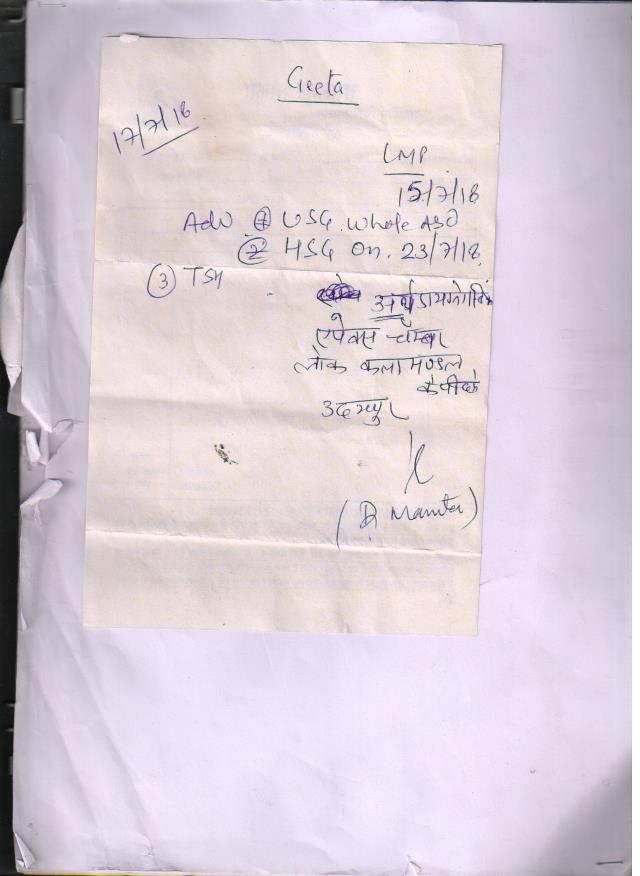 Geeta
17/7/18
LMP
15/7/18
Adv ① USG. Whole Abd
② HSG On. 23/7/18
③ TSH
अर्थ डायग्नोस्टिक
एपेक्स चैम्बर
लोक कला मण्डल
के पीछे
उदयपुर
(Dr Mamta)